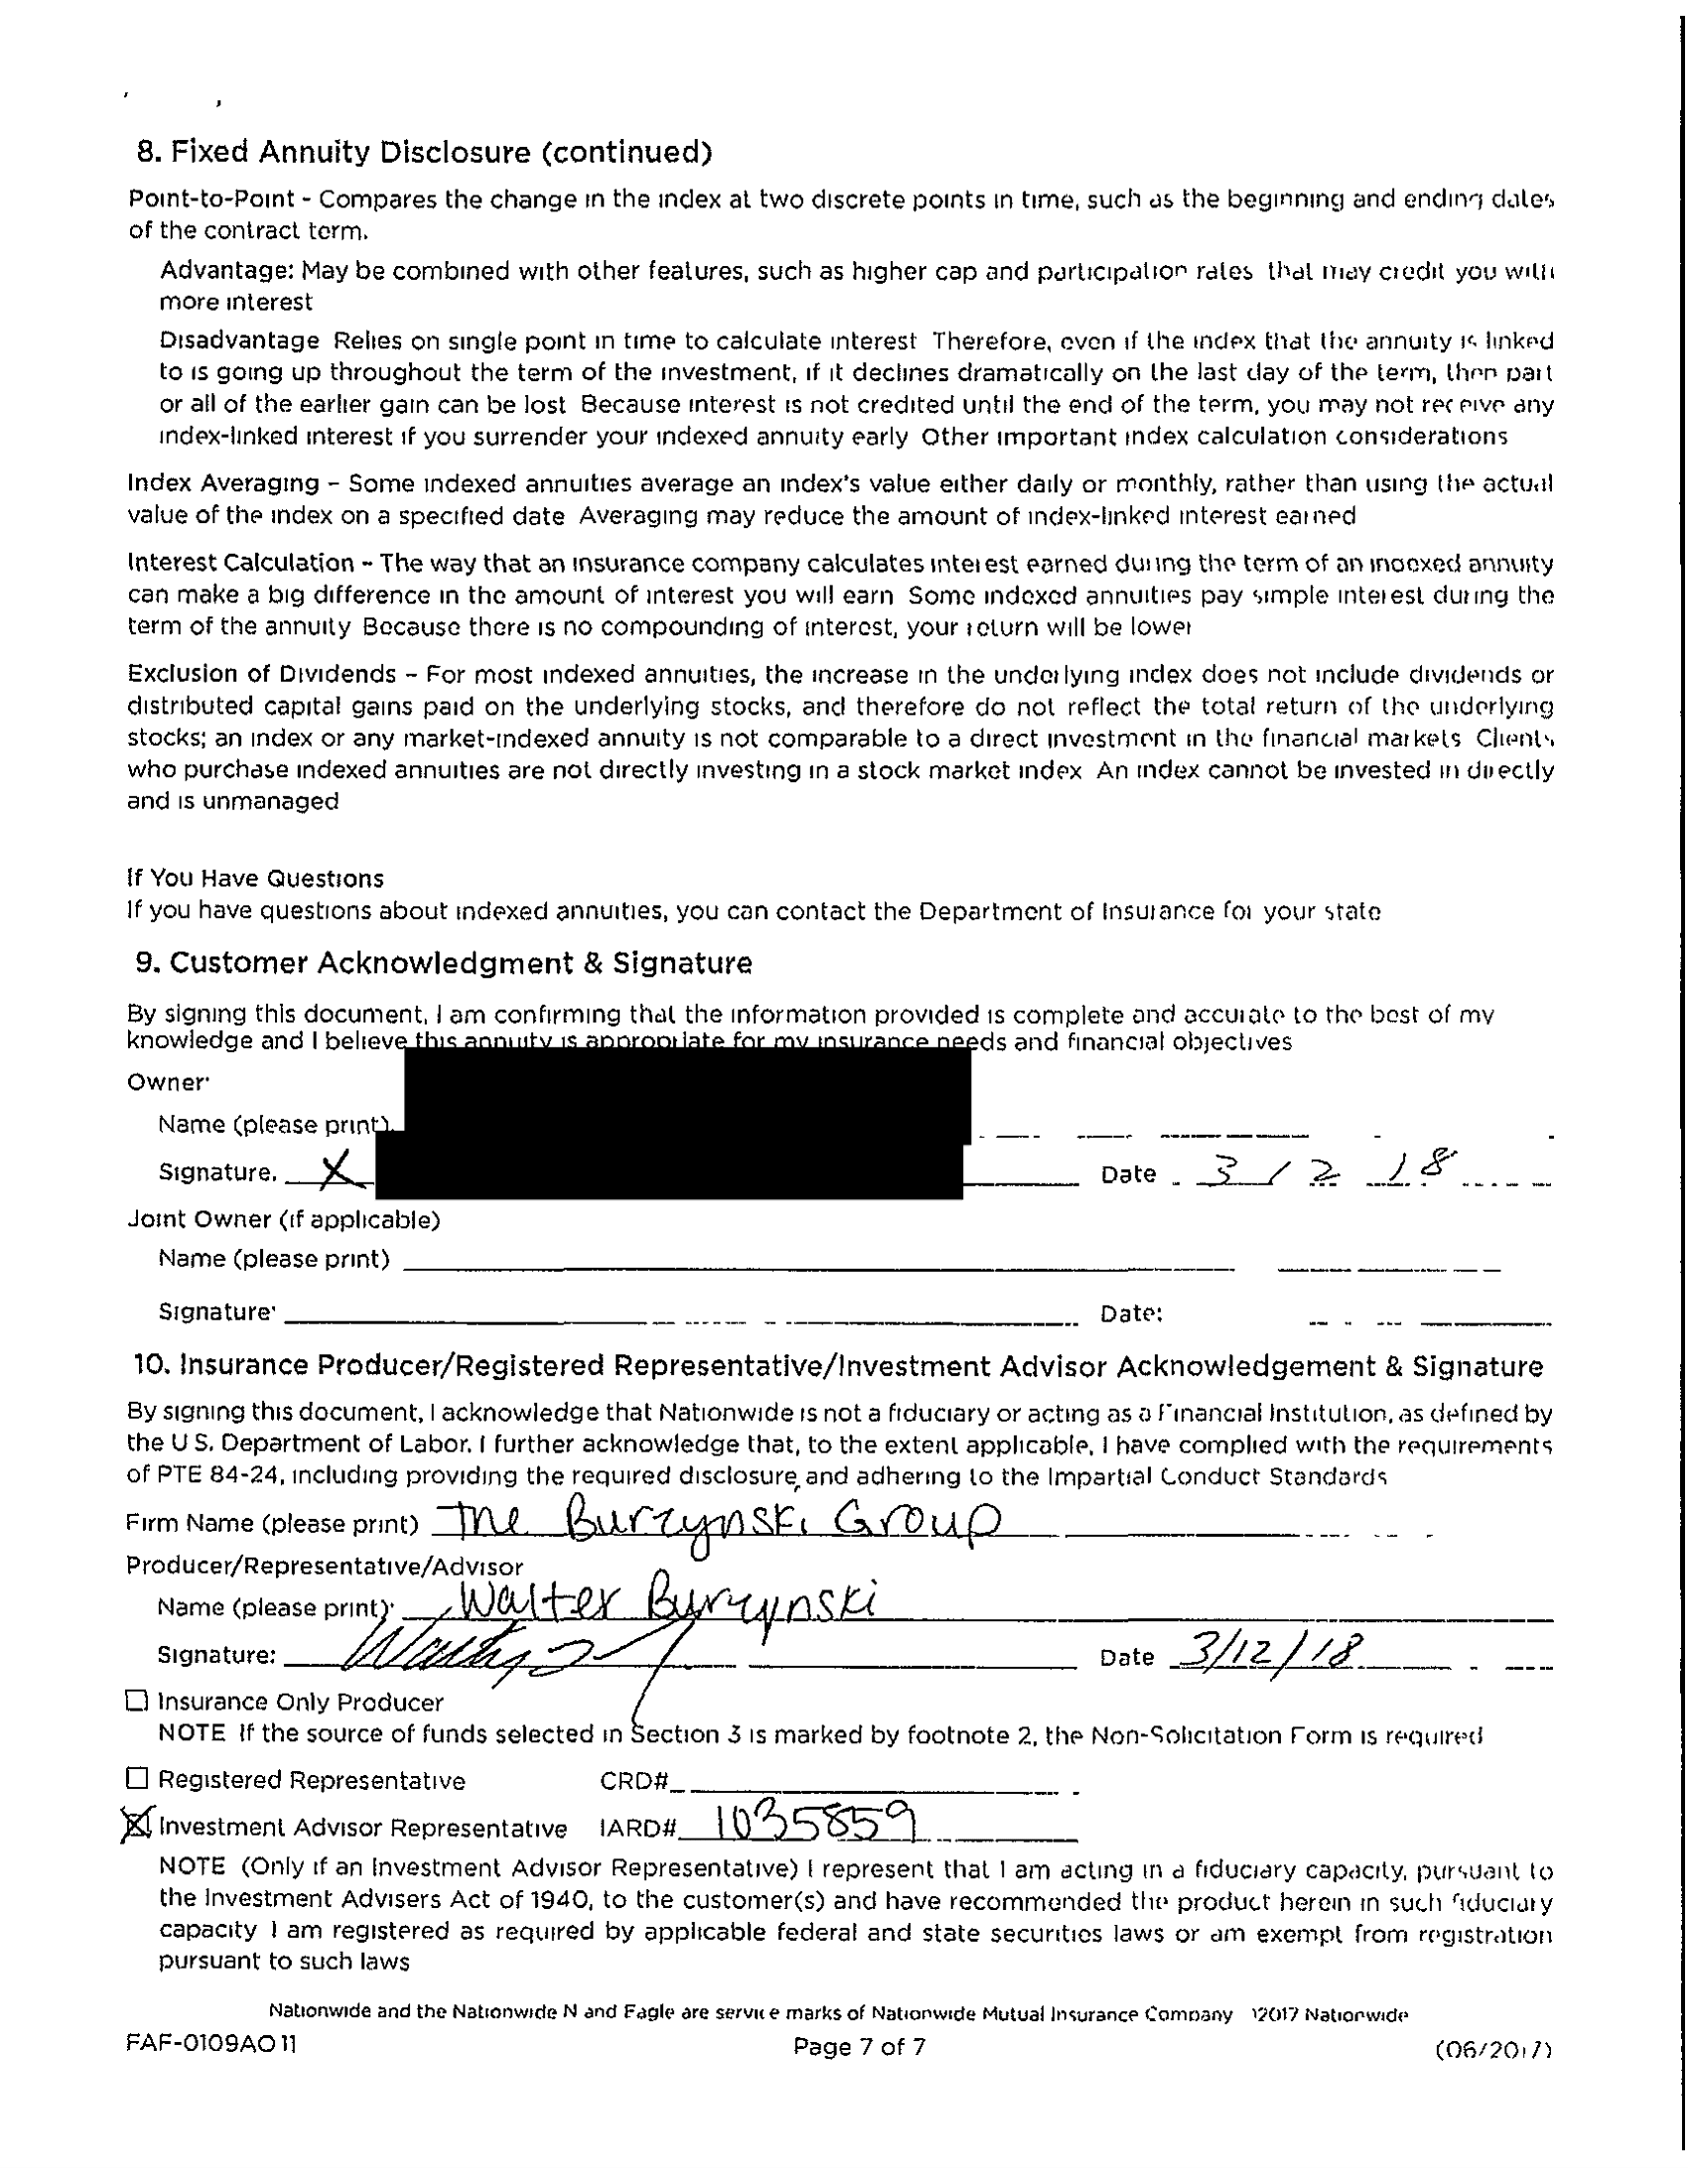 8. Fixed Annuity Disclosure (continued)
Point-to-Point - Compares the change in the index at two discrete points in time, such as the beginning and ending dates
of the contract term.
Advantage: May be combined with other features, such as higher cap and participation rates that may credit you with
more interest
Disadvantage Relies on single point in time to calculate interest Therefore, even if the index that the annuity is linked
to is going up throughout the term of the investment, if it declines dramatically on the last day of the term, then part
or all of the earlier gain can be lost Because interest is not credited until the end of the term, you may not receive any
index-linked interest if you surrender your indexed annuity early Other important index calculation considerations
Index Averaging - Some indexed annuities average an index's value either daily or monthly, rather than using the actual
value of the index on a specified date Averaging may reduce the amount of index-linked interest earned
Interest Calculation - The way that an insurance company calculates interest earned during the term of an indexed annuity
can make a big difference in the amount of interest you will earn Some indexed annuities pay simple interest during the
term of the annuity Because there is no compounding of interest, your return will be lower
Exclusion of Dividends - For most indexed annuities, the increase in the underlying index does not include dividends or
distributed capital gains paid on the underlying stocks, and therefore do not reflect the total return of the underlying
stocks; an index or any market-indexed annuity is not comparable to a direct investment in the financial markets Clients
who purchase indexed annuities are not directly investing in a stock market index An index cannot be invested in directly
and is unmanaged
If You Have Questions
If you have questions about indexed annuities, you can contact the Department of Insurance for your state
9. Customer Acknowledgment & Signature
By signing this document, I am confirming that the information provided is complete and accurate to the best of my
knowledge and I believe this annuity is appropriate for my insurance needs and financial objectives
Owner:
Name (please print)
Signature. X Date 3 / 2 / 8
Joint Owner (if applicable)
Name (please print)
Signature: Date:
10. Insurance Producer/Registered Representative/Investment Advisor Acknowledgement & Signature
By signing this document, I acknowledge that Nationwide is not a fiduciary or acting as a Financial Institution, as defined by
the U S. Department of Labor. I further acknowledge that, to the extent applicable, I have complied with the requirements
of PTE 84-24, including providing the required disclosure, and adhering to the Impartial Conduct Standards
Firm Name (please print) The Burzynski Group
Producer/Representative/Advisor
Name (please print): Walter Burzynski
Signature: Date 3/12/18
Insurance Only Producer
NOTE If the source of funds selected in Section 3 is marked by footnote 2, the Non-Solicitation Form is required
Registered Representative CRD#
Investment Advisor Representative IARD# 1035859
NOTE (Only if an Investment Advisor Representative) I represent that I am acting in a fiduciary capacity, pursuant to
the Investment Advisers Act of 1940, to the customer(s) and have recommended the product herein in such fiduciary
capacity I am registered as required by applicable federal and state securities laws or am exempt from registration
pursuant to such laws
Nationwide and the Nationwide N and Eagle are service marks of Nationwide Mutual Insurance Company 2017 Nationwide
FAF-0109AO 11 Page 7 of 7 (06/2017)